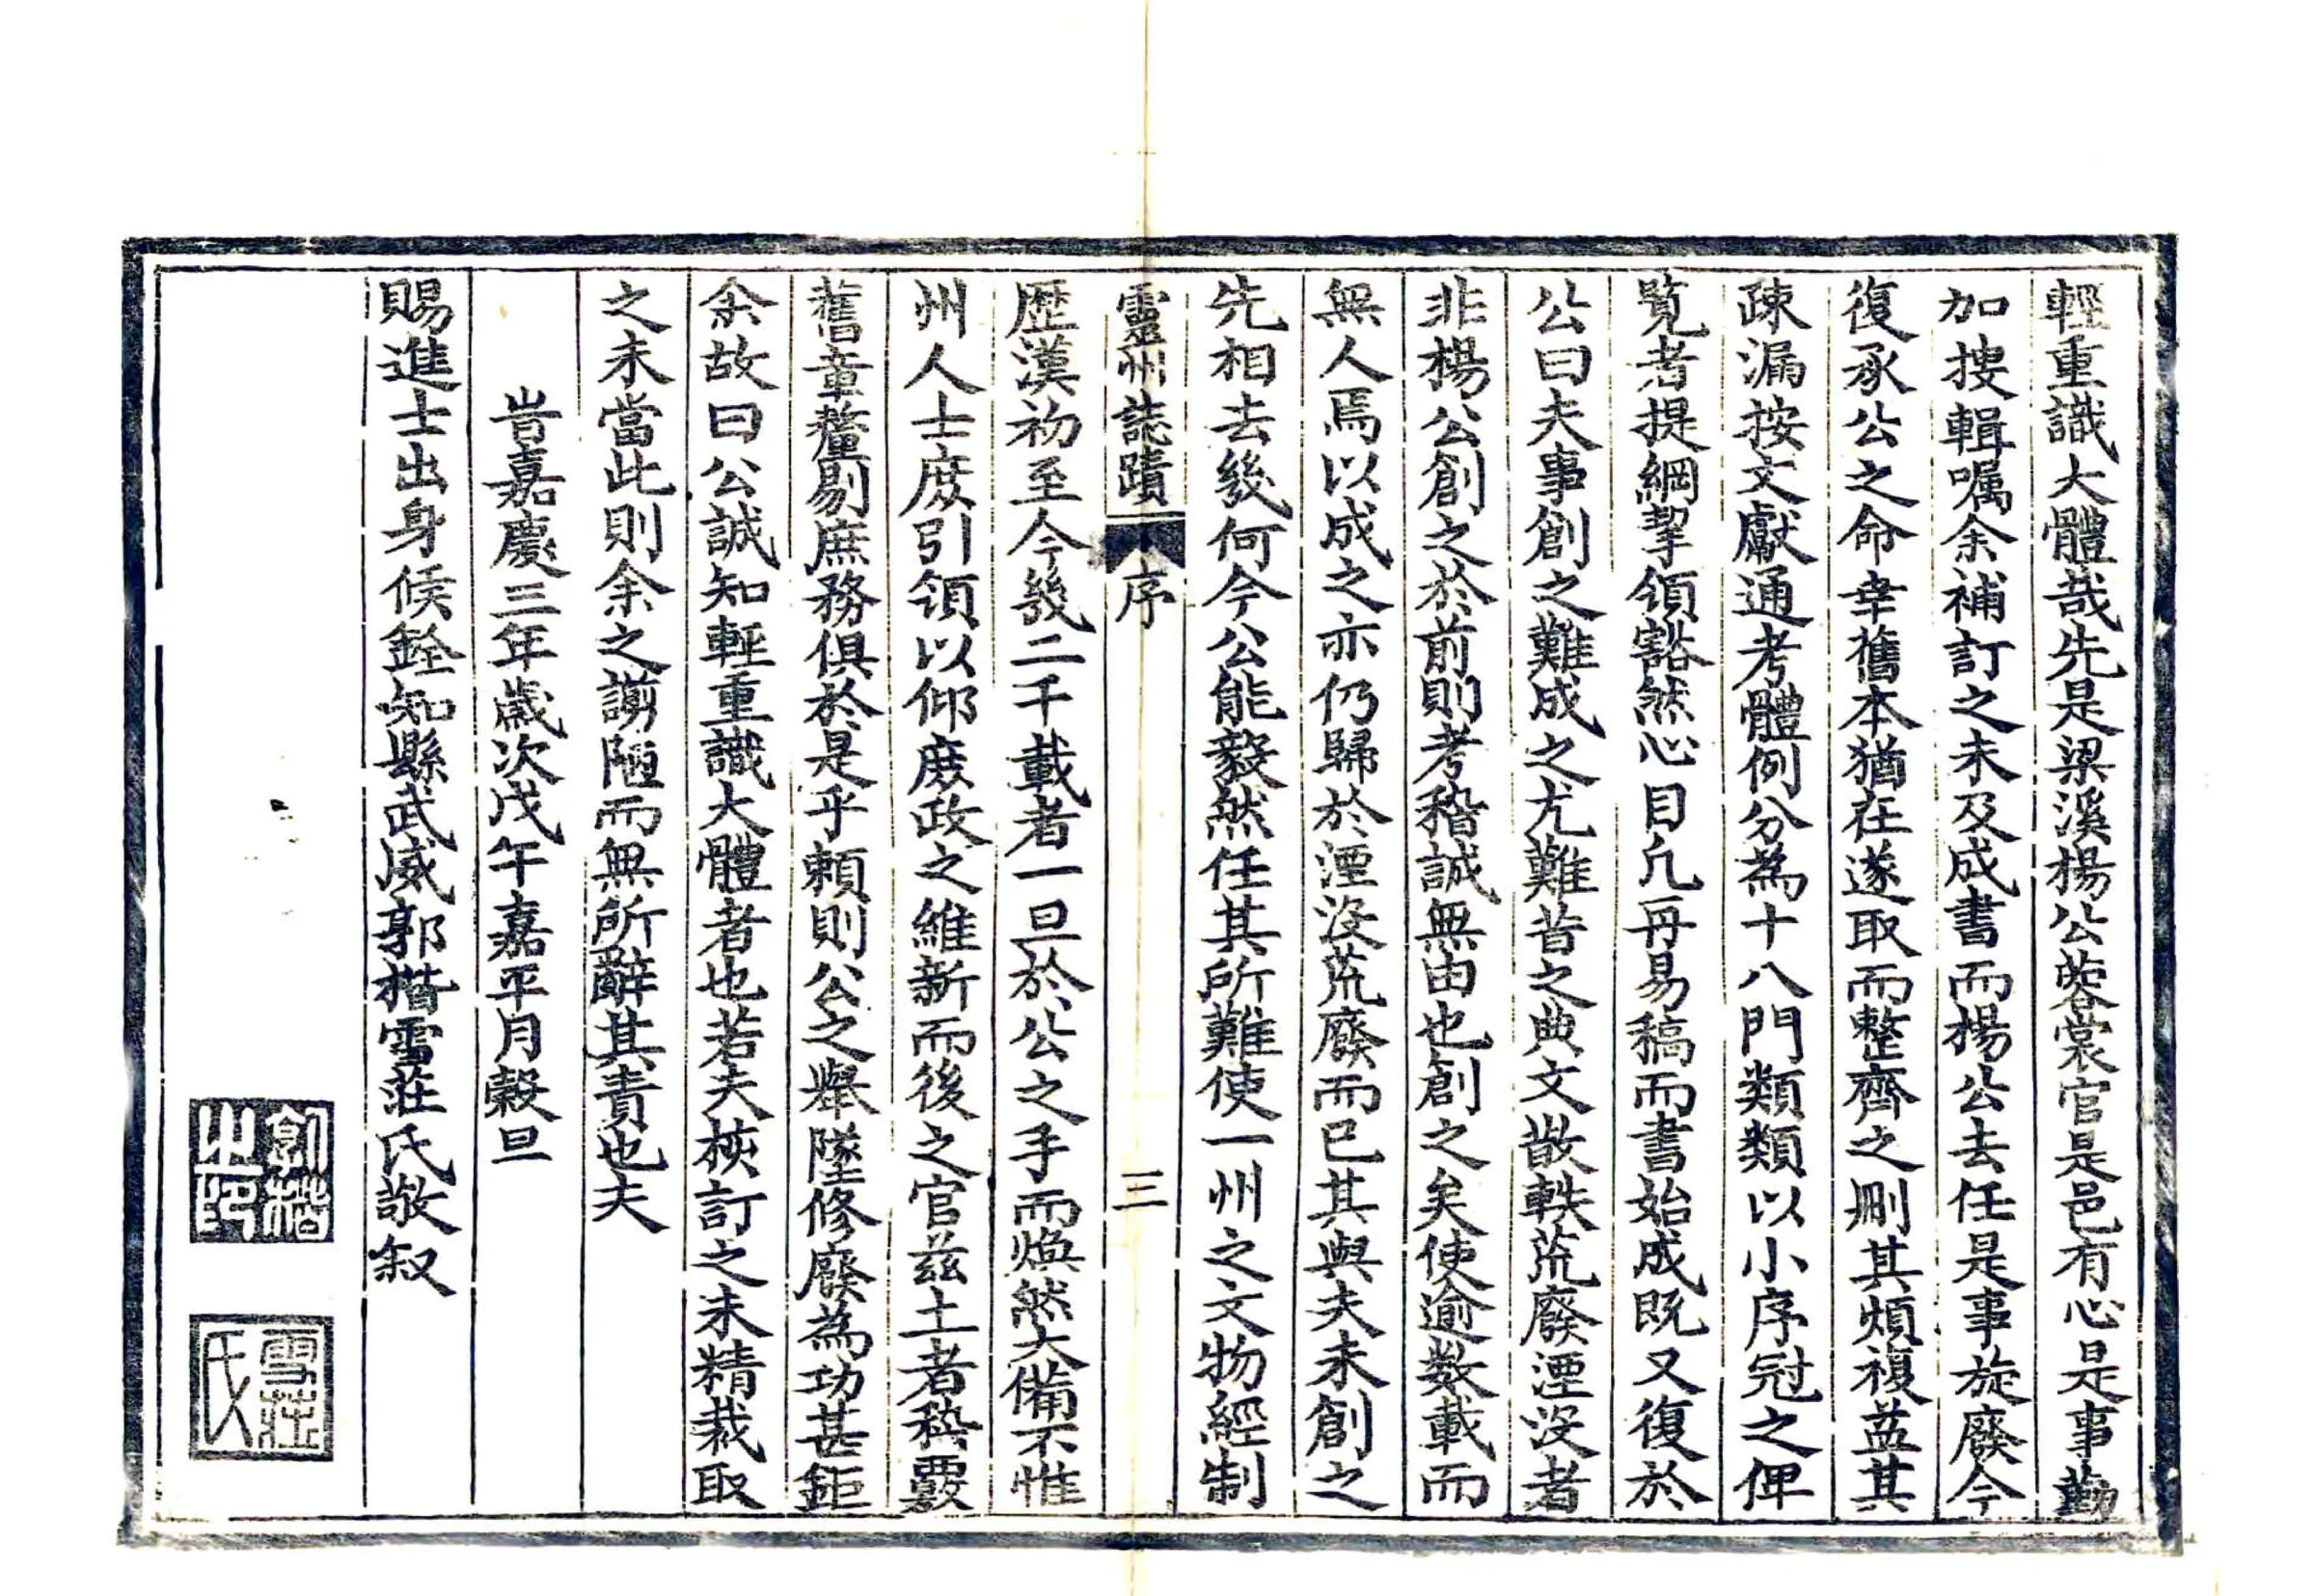 輕重識大體哉先是梁溪楊公蓉裳官是邑有心是事勤
加摟輯囑余補訂之未及成書而楊公去任是事旋廢今
復承公之命幸舊本猶在遂取而整齊之刪其煩複益其
疎漏按文獻通考體例分為十八門類類以小序冠之俾
覽者提綱挈領豁然心目凢再易稿而書始成既又復於
公曰夫事創之難成之尤難昔之典文散軼荒廢湮沒者
非楊公創之於前則考稽誠無由也創之矣使逾数載而
無人焉以成之亦仍歸於湮沒荒廢而已其與夫未創之
先相去幾何今公能毅然任其所難使一州之文物經制
靈州誌蹟 序 三
歷漢初至今幾二千載者一旦於公之手而煥然大備不惟
州人士庶引領以仰庶政之維新而後之官兹土者稽覈
舊章釐剔庶務俱於是乎賴則公之舉墜修廢為功甚鉅
余故曰公誠知輕重識大體者也若夫校訂之未精裁取
之未當此則余之謭陋而無所辭其責也夫
旹嘉慶三年歲次戊午嘉平月穀旦
賜進士出身候銓知縣武威郭楷雪莊氏敬叙
之印
雪莊氏